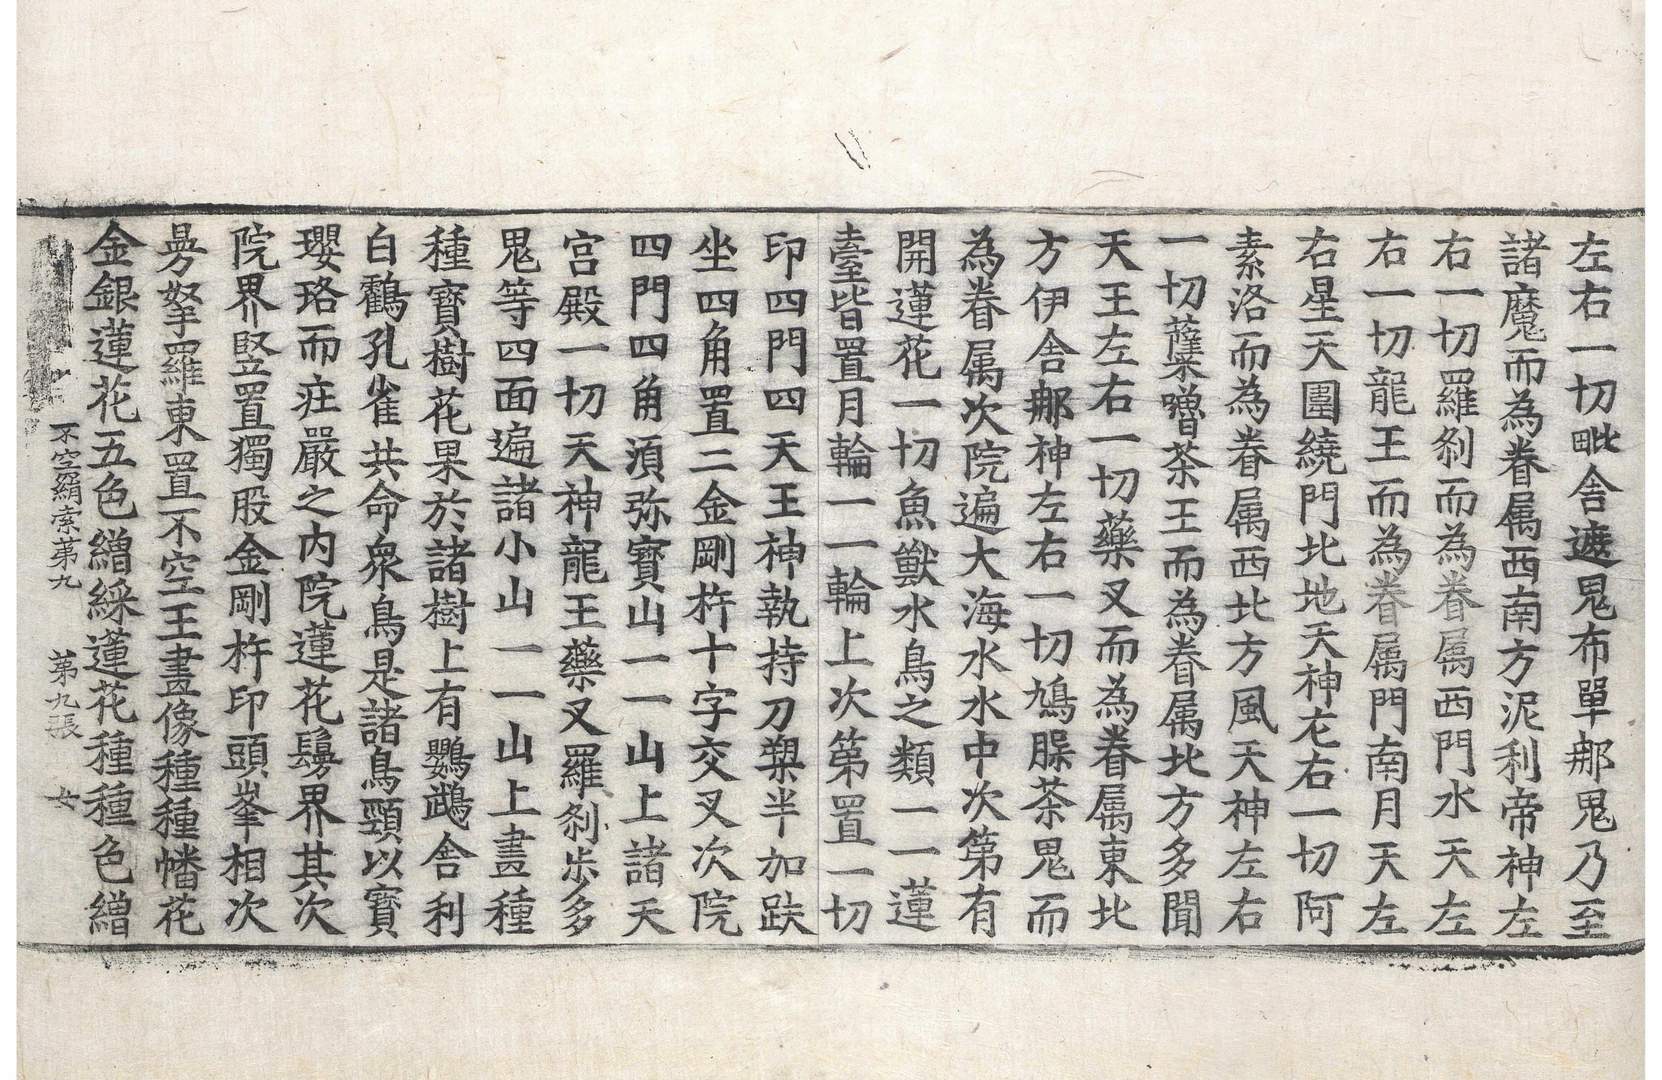 左右一切毗舍遮鬼布單那鬼乃至
諸魔而為眷属西南方泥利帝神左
右一切羅剎而為眷属西門水天左
右一切龍王而為眷属門南月天左
右星天圍繞門北地天神左右一切阿
素洛而為眷属西北方風天神左右
一切薩㗚嚕茶王而為眷属北方多聞
天王左右一切藥叉而為眷属東北
方伊舍那神左右一切鳩䐯茶鬼而
為眷属次院遍大海水水中次第有
開蓮花一切魚獸水鳥之類一一蓮
臺皆置月輪一一輪上次第置一切
印四門四天王神執持刀槊半加趺
坐四角置二金剛杵十字交叉次院
四門四角湏弥寶山一一山上諸天
宮殿一切天神龍王藥叉羅剎步多
鬼等四面遍諸小山一一山上畫種
種寶樹花果於諸樹上有鸚鵡舍利
白鸖孔雀共命衆鳥是諸鳥頸以寶
瓔珞而庄嚴之内院蓮花鬘界其次
院界竪置獨股金剛杵印頭峯相次
㫄拏羅東置不空王畫像種種幡花
金銀蓮花五色繒綵蓮花種種色繒
不空羂索第九 第九張 女